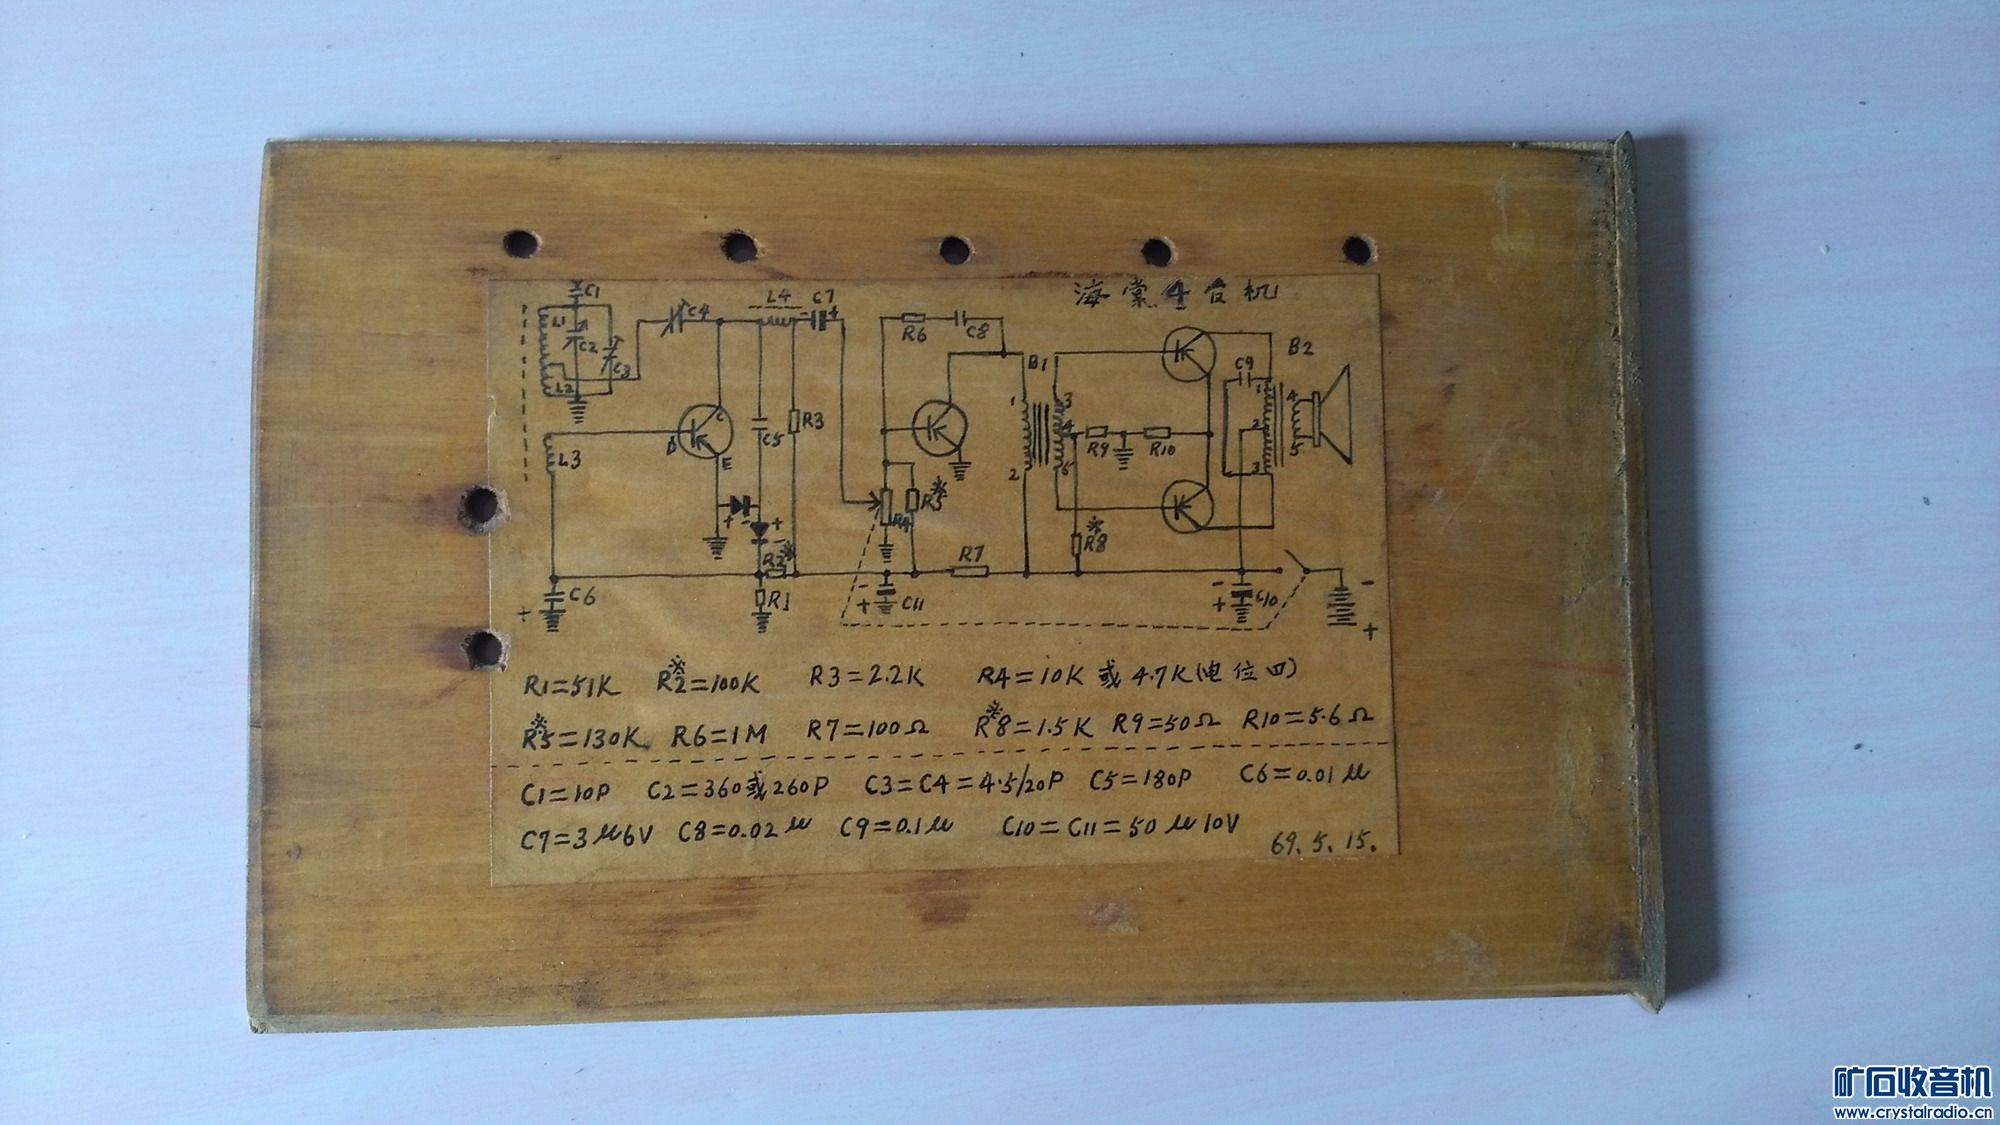 海棠4管机
C1
L1
C2
C3
L2
C4
L4
C7
- +
R6
C8
B1
B2
C9
L3
B
C
E
C5
R3
R4
R5※
1
2
3
4
5
R9
R10
R8※
1
2
3
4
5
+ -
+ -
R2※
R1
C6
+
R7
C11
- +
C10
- +
- +
R1=51K R2※=100K R3=2.2K R4=10K或4.7K(电位四)
R5※=130K R6=1M R7=100Ω R8※=1.5K R9=50Ω R10=5.6Ω
C1=10P C2=360或260P C3=C4=4.5/20P C5=180P C6=0.01μ
C7=3μ6V C8=0.02μ C9=0.1μ C10=C11=50μ10V
69.5.15.
矿石收音机
www.crystalradio.cn